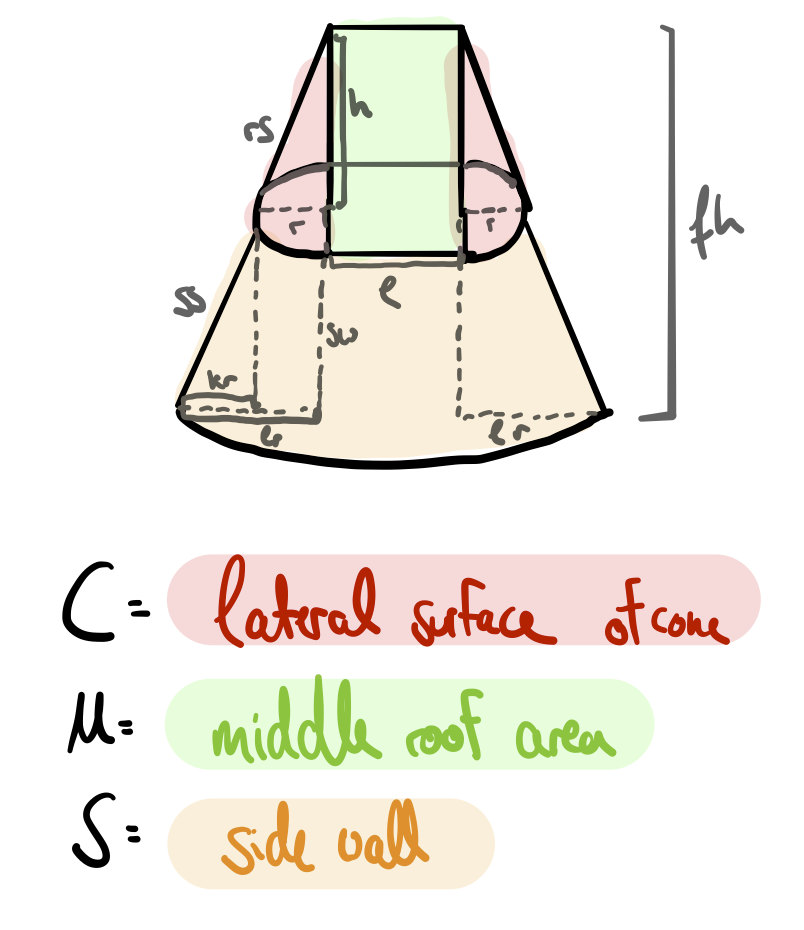 h
rs
fh
r
r
l
ss
sw
kr
lr
lr
C = lateral surface of cone
M = middle roof area
S = side wall